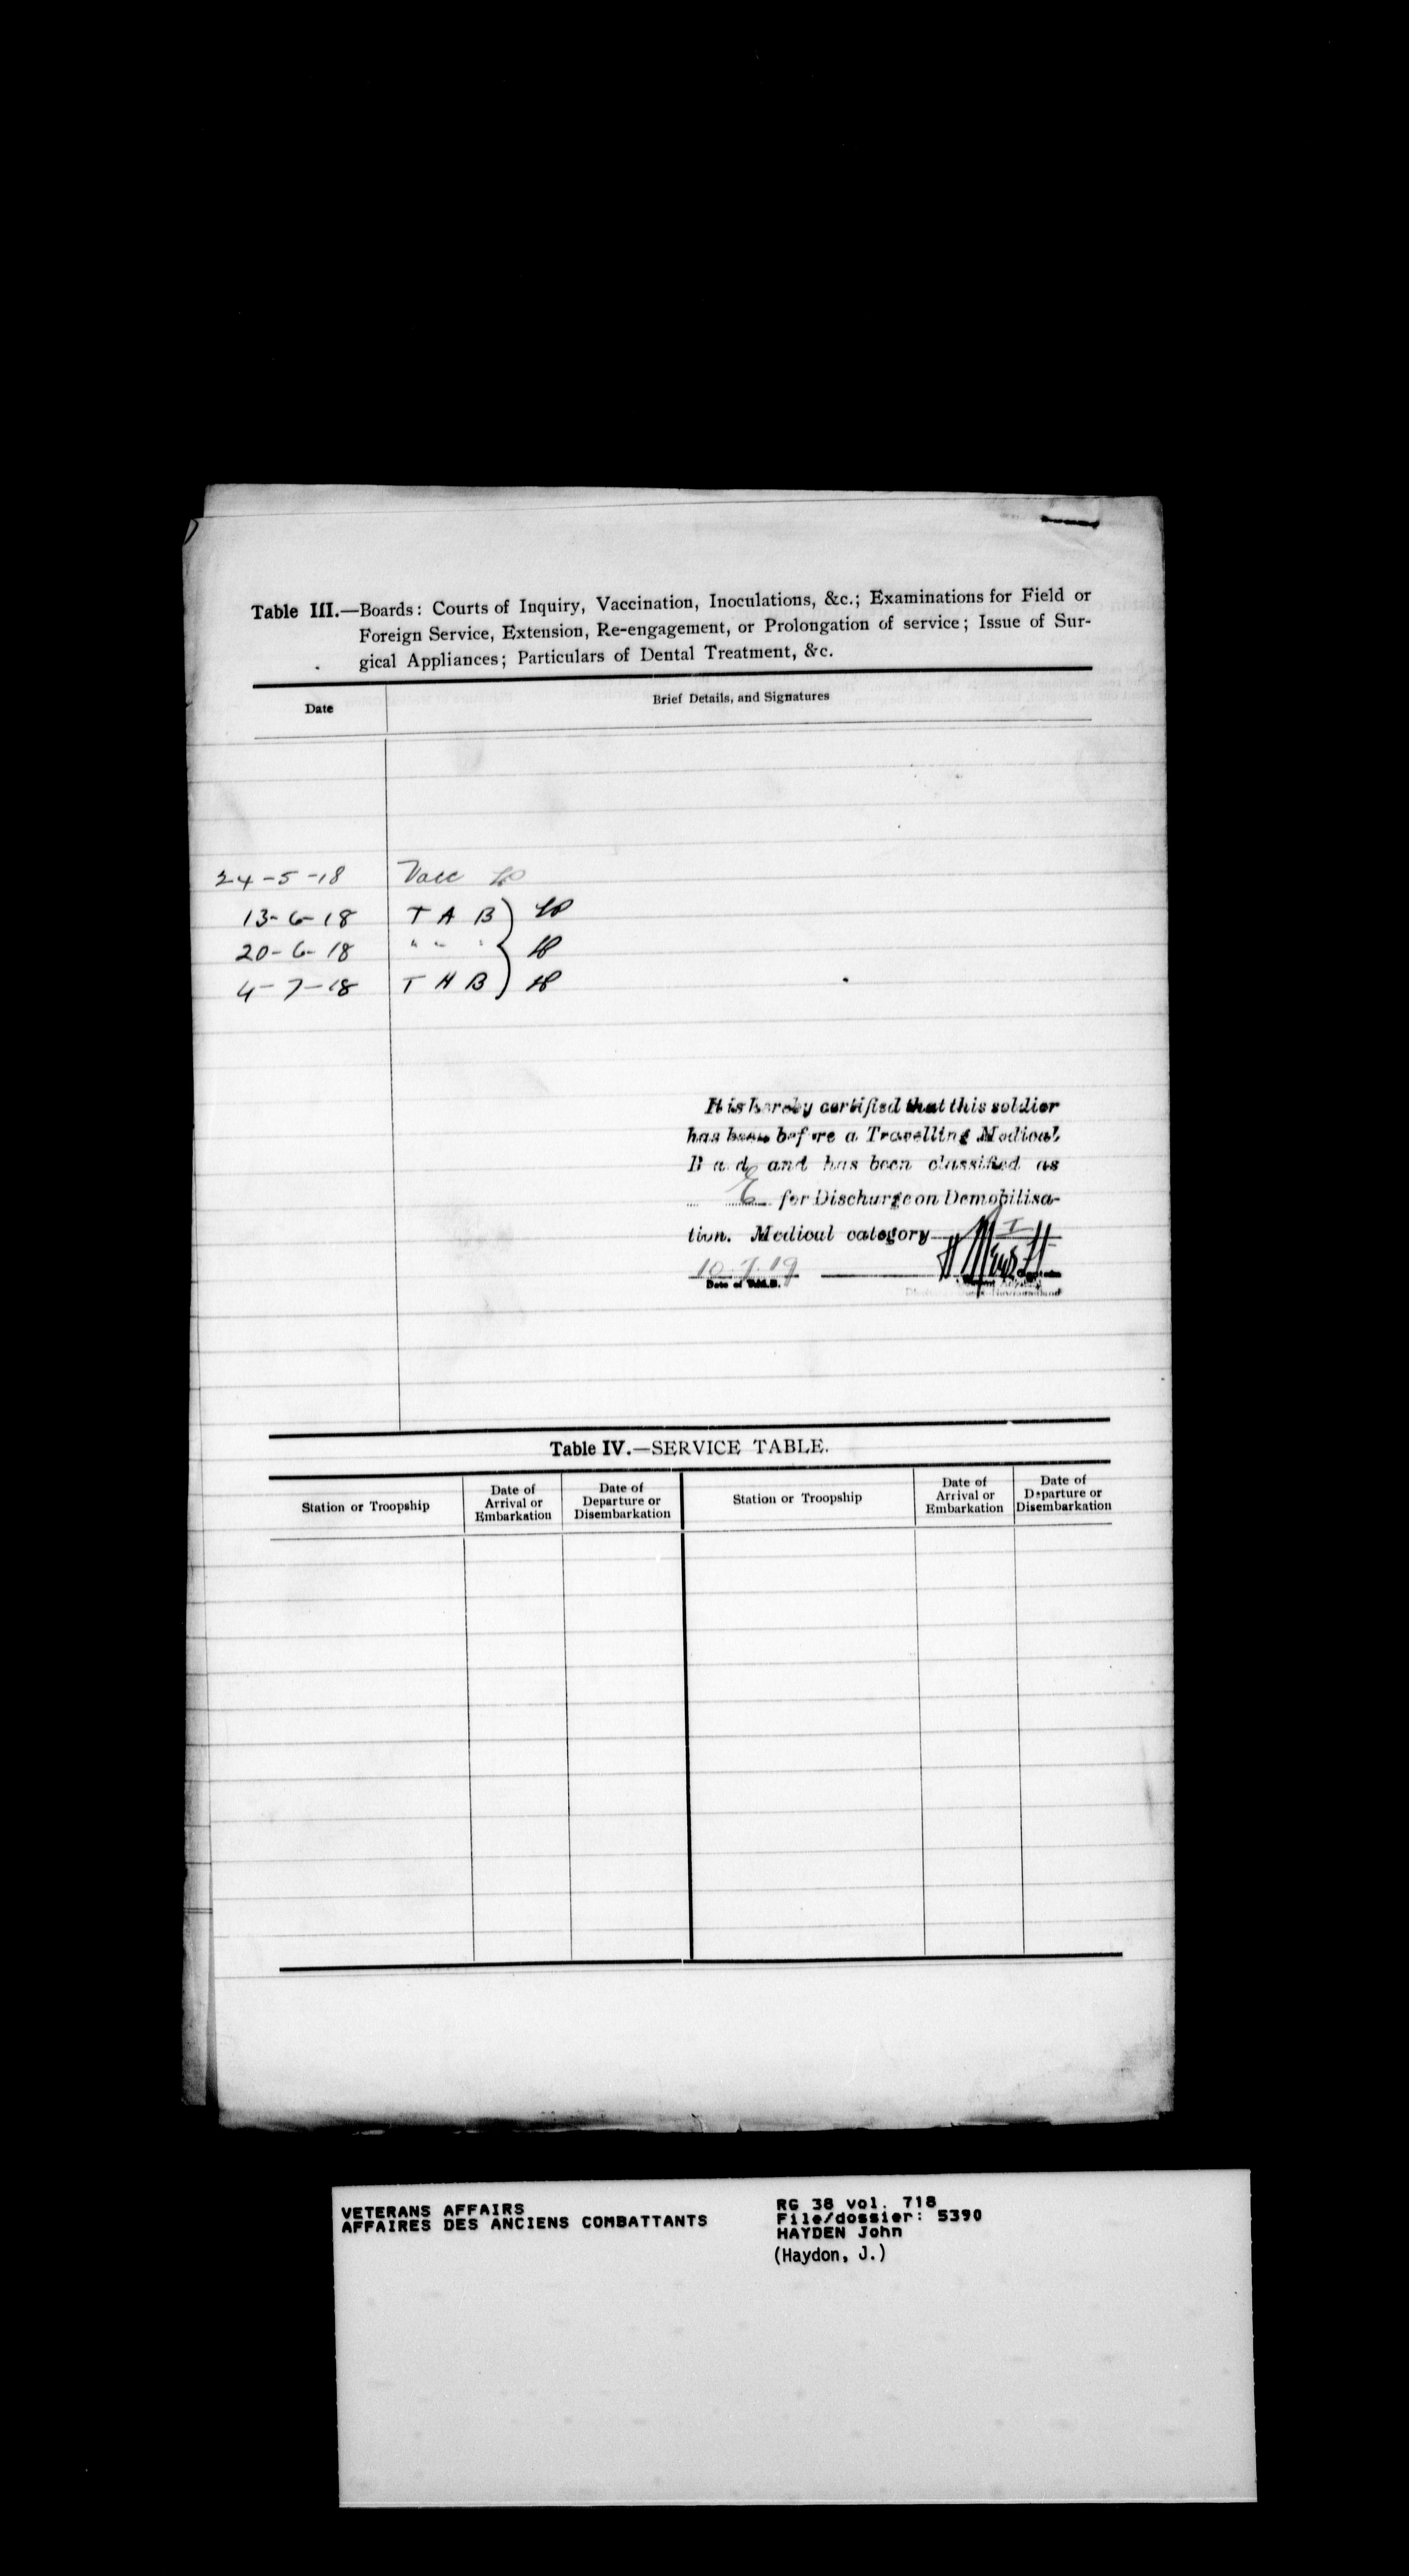 Table III.—Boards: Courts of Inquiry, Vaccination, Inoculations, &c.; Examinations for Field or
Foreign Service, Extension, Re-engagement, or Prolongation of service; Issue of Sur-
gical Appliances; Particulars of Dental Treatment, &c.
Date Brief Details, and Signatures
24-5-18 Vacc
13-6-18 T A B
20-6-18 " " "
4-7-18 T A B
It is hereby certified that this soldier
has been before a Travelling Medical
B a d and has been classified as
E for Discharge on Demobilisa-
tion. Medical category I
10.7.19
Date of T.M.B.
Table IV.—SERVICE TABLE.
Station or Troopship Date of Arrival or Embarkation Date of Departure or Disembarkation Station or Troopship Date of Arrival or Embarkation Date of Departure or Disembarkation
VETERANS AFFAIRS
AFFAIRES DES ANCIENS COMBATTANTS
RG 38 vol. 718
File/dossier: 5390
HAYDEN John
(Haydon, J.)